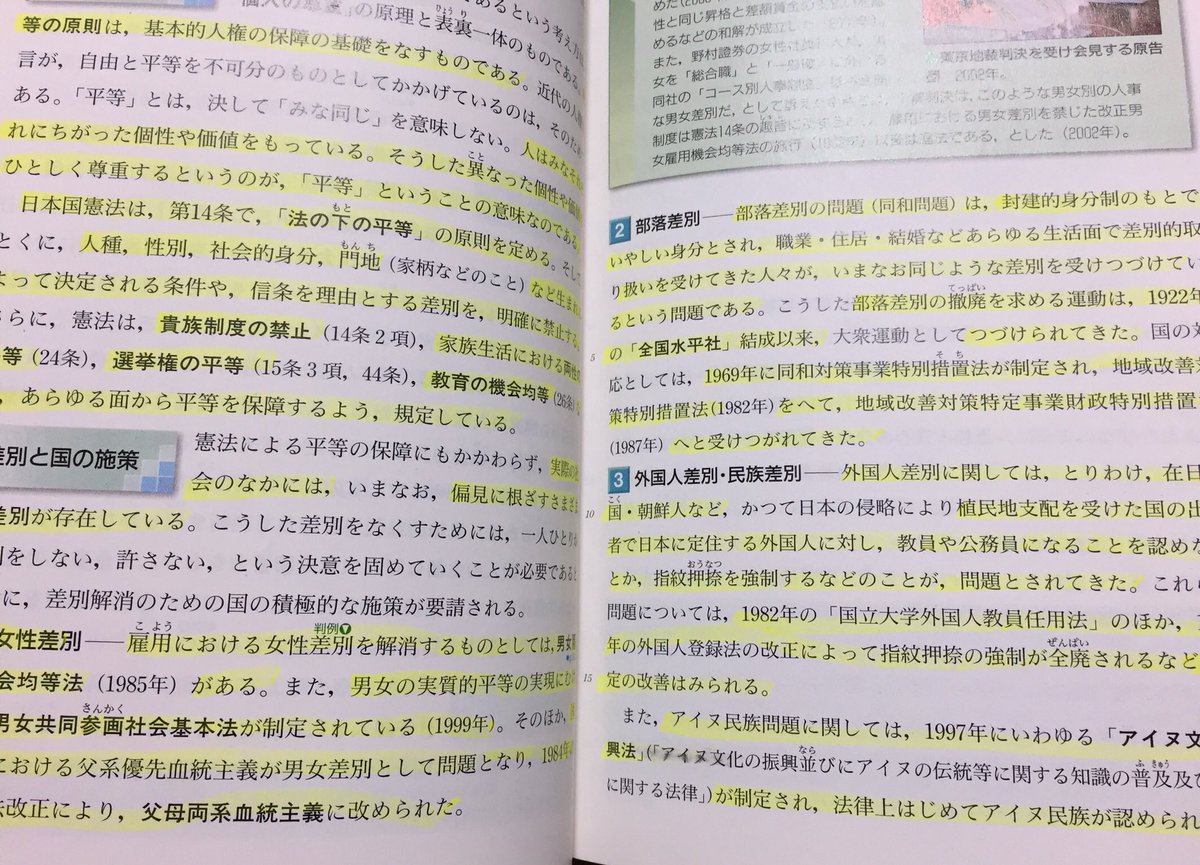 であるという考え方は
個人の尊重」の原理と表裏一体のものである。
等の原則は，基本的人権の保障の基礎をなすものである。近代の人権
言が，自由と平等を不可分のものとしてかかげているのは，そのため
ある。「平等」とは，決して「みな同じ」を意味しない。人はみなそれ
れにちがった個性や価値をもっている。そうした異なった個性や価値
ひとしく尊重するというのが，「平等」ということの意味なのである。
日本国憲法は，第14条で，「法の下の平等」の原則を定める。そして
とくに，人種，性別，社会的身分，門地（家柄などのこと）など生まれ
よって決定される条件や，信条を理由とする差別を，明確に禁止する。
らに，憲法は，貴族制度の禁止（14条2項），家族生活における両性の
等（24条），選挙権の平等（15条3項，44条），教育の機会均等（26条）
，あらゆる面から平等を保障するよう，規定している。
差別と国の施策
憲法による平等の保障にもかかわらず，実際の社
会のなかには，いまなお，偏見に根ざすさまざま
差別が存在している。こうした差別をなくすためには，一人ひとりが
別をしない，許さない，という決意を固めていくことが必要であると
に，差別解消のための国の積極的な施策が要請される。
女性差別――雇用における女性差別を解消するものとしては，男女
判例
会均等法（1985年）がある。また，男女の実質的平等の実現にむけ
男女共同参画社会基本法が制定されている（1999年）。そのほか，
における父系優先血統主義が男女差別として問題となり，1984年
法改正により，父母両系血統主義に改められた。
性と同じ昇格と差額賃金の支払い
めるなどの和解が成立した
また，野村證券の女性社員
女を「総合職」と「一般職」に
同社の「コース別人事制度」
な男女差別だ，として訴え
判決は，このような男女別の人事
制度は憲法14条の趣旨に
における男女差別を禁じた改正男
女雇用機会均等法の施行
違法である，とした（2002年）。
東京地裁判決を受け会見する原告
2002年。
2 部落差別――部落差別の問題（同和問題）は，封建的身分制のもとで
いやしい身分とされ，職業・住居・結婚などあらゆる生活面で差別的取
り扱いを受けてきた人々が，いまなお同じような差別を受けつづけてい
るという問題である。こうした部落差別の撤廃を求める運動は，1922年
5 の「全国水平社」結成以来，大衆運動としてつづけられてきた。国の対
応としては，1969年に同和対策事業特別措置法が制定され，地域改善対
策特別措置法(1982年)をへて，地域改善対策特定事業財政特別措置
(1987年) へと受けつがれてきた。
3 外国人差別・民族差別――外国人差別に関しては，とりわけ，在日
10 国・朝鮮人など，かつて日本の侵略により植民地支配を受けた国の出
者で日本に定住する外国人に対し，教員や公務員になることを認めな
とか，指紋押捺を強制するなどのことが，問題とされてきた。これら
問題については，1982年の「国立大学外国人教員任用法」のほか，
年の外国人登録法の改正によって指紋押捺の強制が全廃されるなど
15 定の改善はみられる。
また，アイヌ民族問題に関しては，1997年にいわゆる「アイヌ文
興法」(「アイヌ文化の振興並びにアイヌの伝統等に関する知識の普及及び
に関する法律」)が制定され，法律上はじめてアイヌ民族が認められ